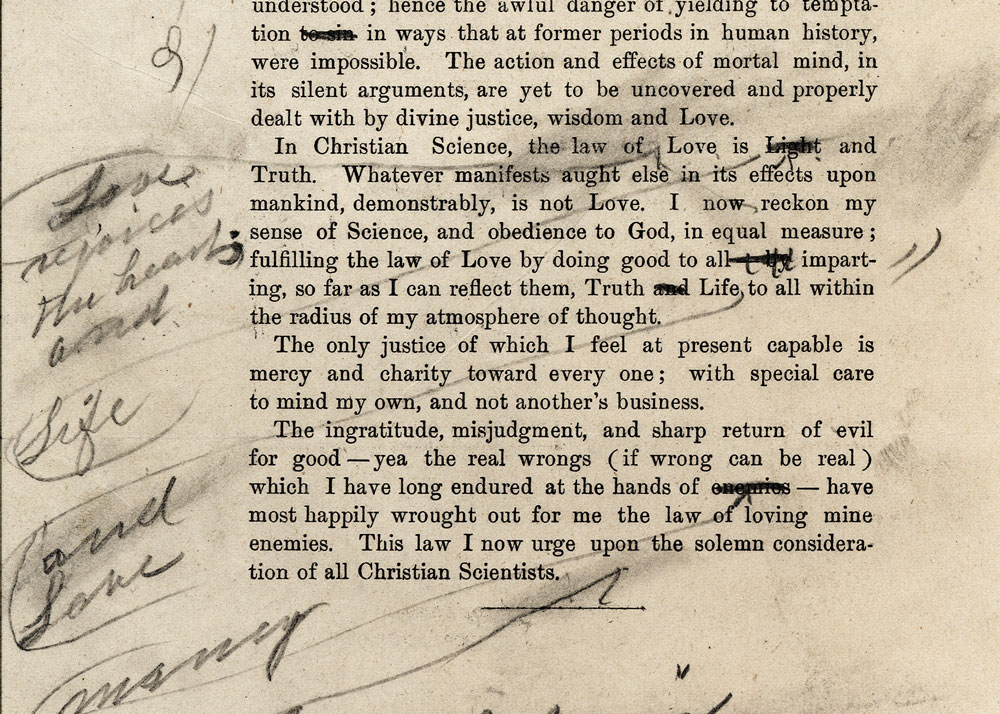 understood; hence the awful danger of yielding to tempta-
tion to sin in ways that at former periods in human history,
were impossible. The action and effects of mortal mind, in
its silent arguments, are yet to be uncovered and properly
dealt with by divine justice, wisdom and Love.
In Christian Science, the law of Love is Light and
Truth. Whatever manifests aught else in its effects upon
mankind, demonstrably, is not Love. I now reckon my
sense of Science, and obedience to God, in equal measure;
fulfilling the law of Love by doing good to all impart-
ing, so far as I can reflect them, Truth and Life, to all within
the radius of my atmosphere of thought.
The only justice of which I feel at present capable is
mercy and charity toward every one; with special care
to mind my own, and not another's business.
The ingratitude, misjudgment, and sharp return of evil
for good—yea the real wrongs (if wrong can be real)
which I have long endured at the hands of enemies — have
most happily wrought out for me the law of loving mine
enemies. This law I now urge upon the solemn considera-
tion of all Christian Scientists.
Love
rejoices
the heart
and
Life
and
Love
many